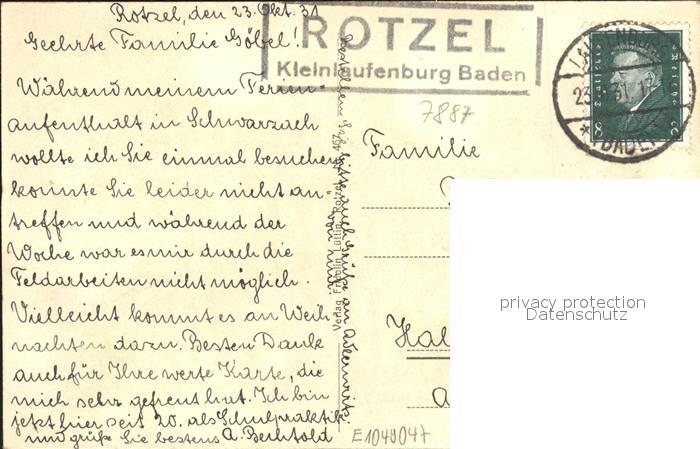 Rotzel, den 23. Okt. 31
Geehrte Familie Göbel!
Während meinem Ferien-
aufenthalt in Schwarzach
wollte ich Sie einmal besuchen
konnte Sie leider nicht an-
treffen und während der
Woche war es mir durch die
Feldarbeiten nicht möglich.
Vielleicht kommt es an Weih-
nachten dazu. Besten Dank
auch für Ihre werte Karte, die
mich sehr gefreut hat. Ich bin
jetzt hier seit 20. als Schulpraktik
und grüße Sie bestens A. Bechtold
ROTZEL
Kleinlaufenburg Baden
7887
Familie
Hal
a
E1049047
bitte auch Grüße an Adlerwirt.
Verlag
LAUFENBURG
23. 31. 11
* (BADEN)
Deutsches Reich
8 8
privacy protection
Datenschutz